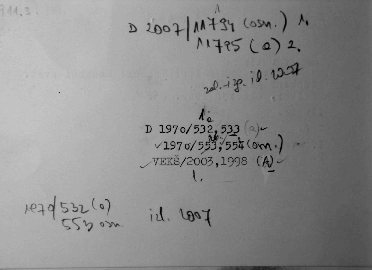 911.3:
D 2007/11794 (osn.) 1.
11795 (a) 2.
id. 2007
1.
D 1970/532,533 (a)
1970/553,554 (osn.)
VEKŠ/2003,1998 (A)
1.
1970/532 (a)
553 osn
id. 2007